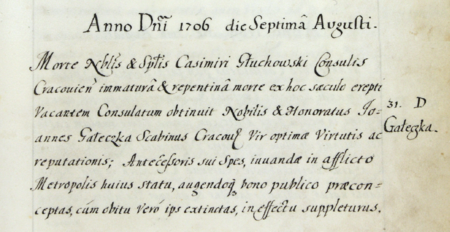 Anno Dnı̃ 1706 die Septimâ Augusti.
Morte Nblis & Spblis Casimiri Głuchowski Consulis
Cracovien̄ immaturâ & repentinâ morte ex hoc sæculo erepti
Vacantem Consulatum obtinuit Nobilis & Honoratus Jo-
annes Gałeczka Scabinus Cracov̄ Vir optimæ Virtutis ac
reputationis; Anteceſsoris sui Spes, iuvandæ in afflicto
Metropolis huius statu, augendoq́ bono publico præcon-
ceptas, cùm obitu Verò ipẛ extinctas, in effectu suppleturus.
31. D
Gałeczka.